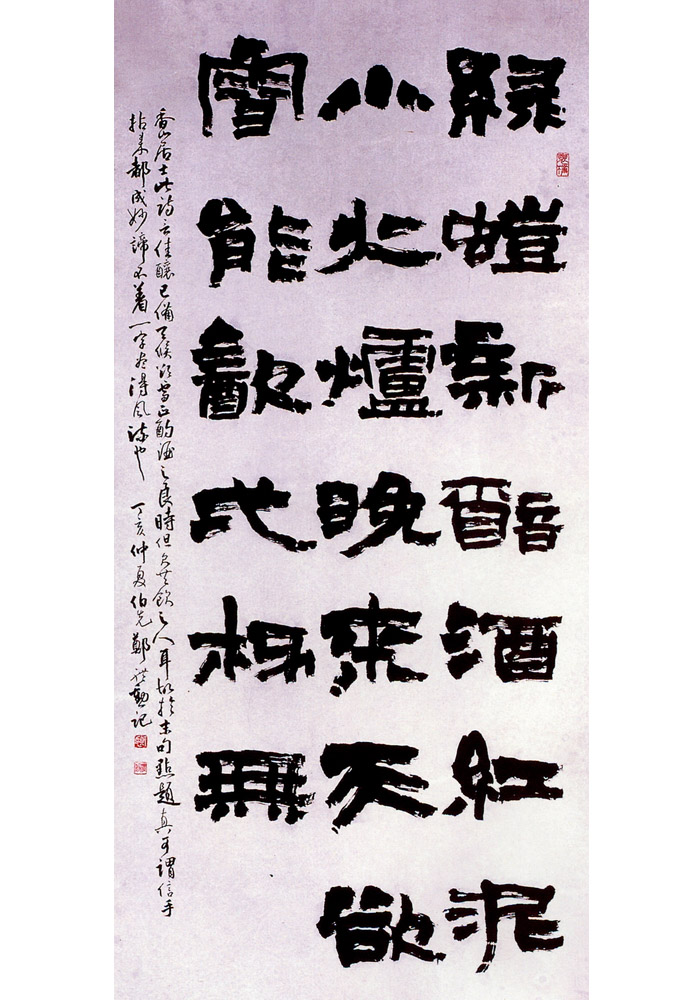 綠螘新醅酒紅泥
小火爐晚來天欲
雪能㱃弌杯無
香山居士此詩云佳釀已備天候欲雪正酌酒之良時但欠共飲之人耳故於末句點題真可謂信手
拈來都成妙諦不着一字盡得風流也 丁亥仲夏伯 鄭禮勳記